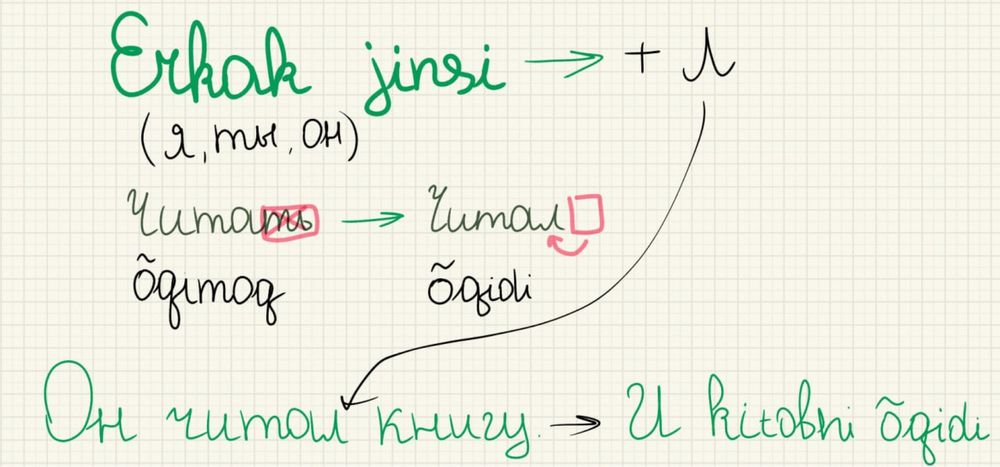 Erkak jinsi → + Л
(Я, ты, он)
Читать → Читал
õqimoq õqidi
Он читал книгу. → U kitobni õqidi